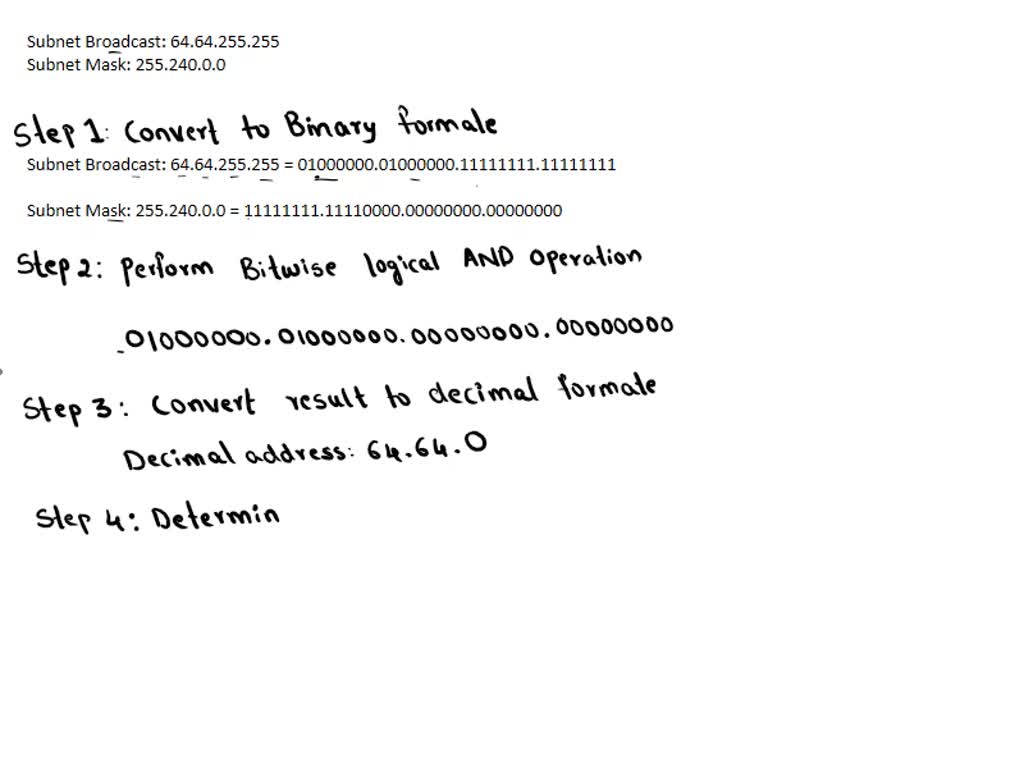 Subnet Broadcast: 64.64.255.255
Subnet Mask: 255.240.0.0
Step 1: Convert to Binary formate
Subnet Broadcast: 64.64.255.255 = 01000000.01000000.11111111.11111111
Subnet Mask: 255.240.0.0 = 11111111.11110000.00000000.00000000
Step 2: Perform Bitwise logical AND Operation
01000000.01000000.00000000.00000000
Step 3: Convert result to decimal formate
Decimal address: 64.64.0
Step 4: Determin